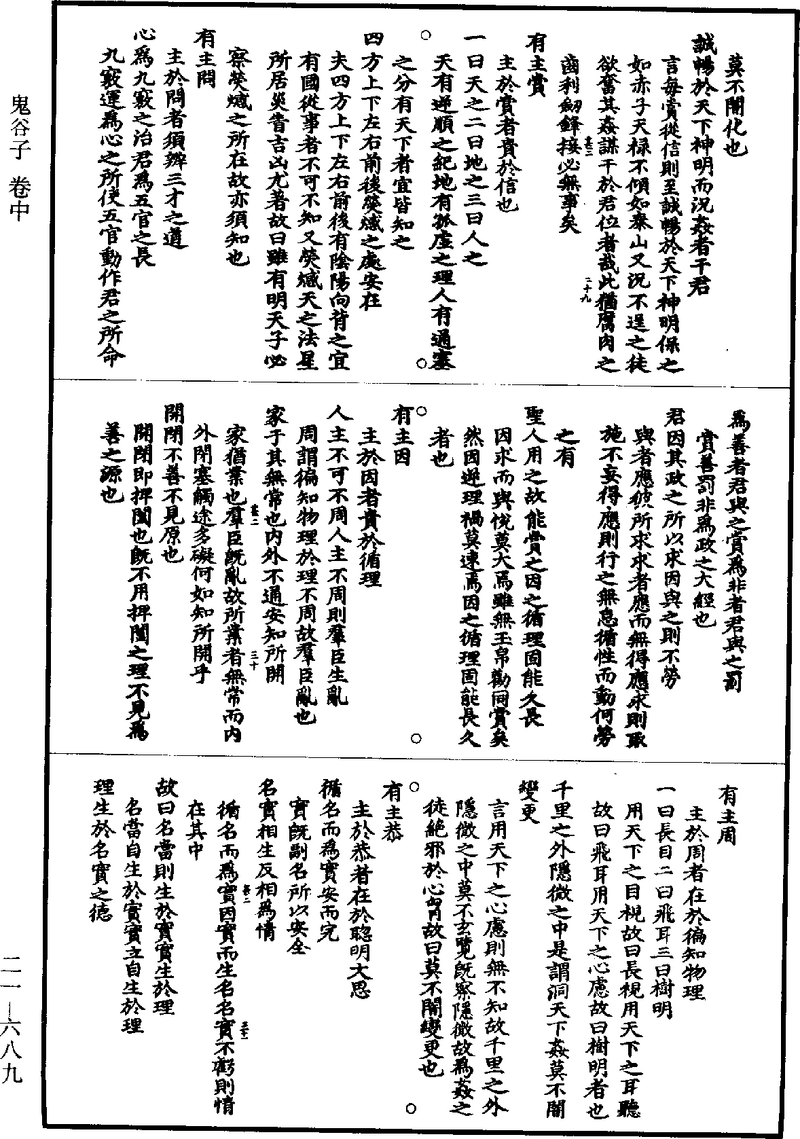 莫不闇化也
誠暢於天下神明而況姦者干君
言每賞從信則至誠暢於天下神明保之
如赤子天祿不傾如泰山又況不逞之徒
欲奮其姦謀干於君位者哉此猶腐肉之
齒利劒鋒接必無事矣
卷二
二十九
有主賞
主於賞者貴於信也
一曰天之二曰地之三曰人之
天有逆順之紀地有孤虛之理人有通塞
之分有天下者宜皆知之
四方上下左右前後熒惑之處安在
夫四方上下左右前後有陰陽向背之宜
有國從事者不可不知又熒惑天之法星
所居災眚吉凶尤著故曰雖有明天子必
察熒惑之所在故亦須知也
有主問
主於問者須辨三才之道
心為九竅之治君為五官之長
九竅運為心之所使五官動作君之所命
為善者君與之賞為非者君與之罰
賞善罰非為政之大經也
君因其政之所以求因與之則不勞
與者應彼所求求者應而無得應求則取
施不妄得應則行之無怠循性而動何勞
之有
聖人用之故能賞之因之循理固能久長
因求而與悅莫大焉雖無玉帛勸同賞矣
然因逆理禍莫速焉因之循理固能長久
者也
有主因
主於因者貴於循理
人主不可不周人主不周則羣臣生亂
周謂徧知物理於理不周故羣臣亂也
家于其無常也內外不通安知所開
家猶業也羣臣既亂故所業者無常而內
卷二
三十
外閉塞觸途多礙何如知所開乎
開閉不善不見原也
開閉即捭闔也既不用捭闔之理不見為
善之源也
有主周
主於周者在於徧知物理
一曰長目二曰飛耳三曰樹明
用天下之目視故曰長視用天下之耳聽
故曰飛耳用天下之心慮故曰樹明者也
千里之外隱微之中是謂洞天下姦莫不闇
變更
言用天下之心慮則無不知故千里之外
隱微之中莫不玄覽既察隱微故為姦之
徒絕邪於心胷故曰莫不闇變更也
有主恭
主於恭者在於聰明文思
循名而為實安而完
實既副名所以安全
名實相生反相為情
循名而為實因實而生名名實不虧則情
卷二
三十一
在其中
故曰名當則生於實實生於理
名當自生於實實立自生於理
理生於名實之德
鬼谷子 卷中
二一—六八九